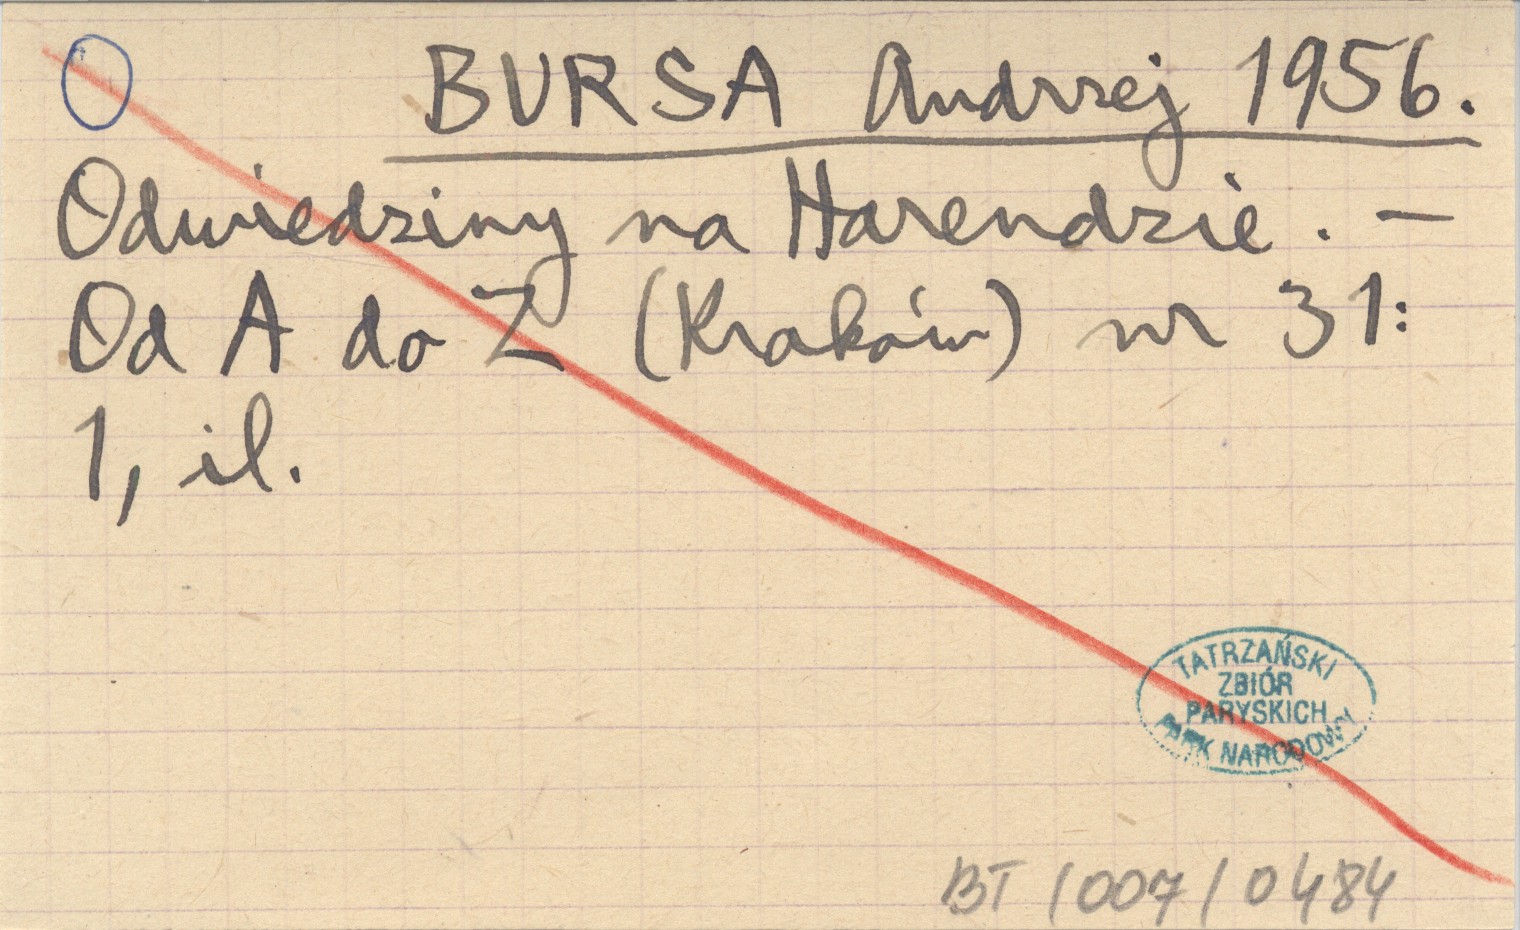 O BURSA Andrzej 1956.
Odwiedziny na Harendzie. –
Od A do Z (Kraków) nr 31:
1, il.
TATRZAŃSKI
ZBIÓR
PARYSKICH
PARK NARODOWY
BT/007/0484